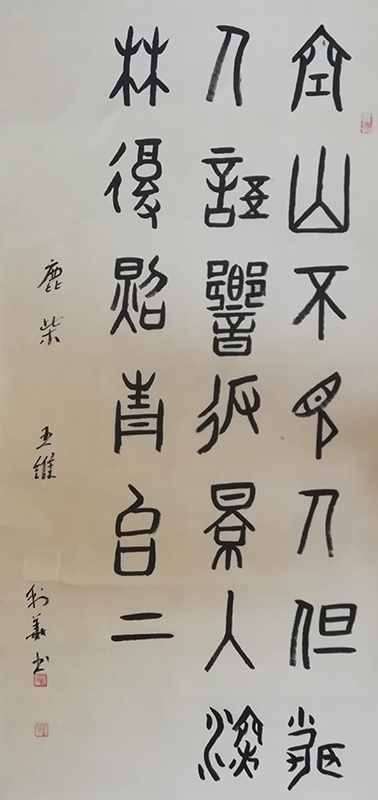 空山不見人但聞
人語響返景入深
林復照青苔上
鹿柴 王維 利義书